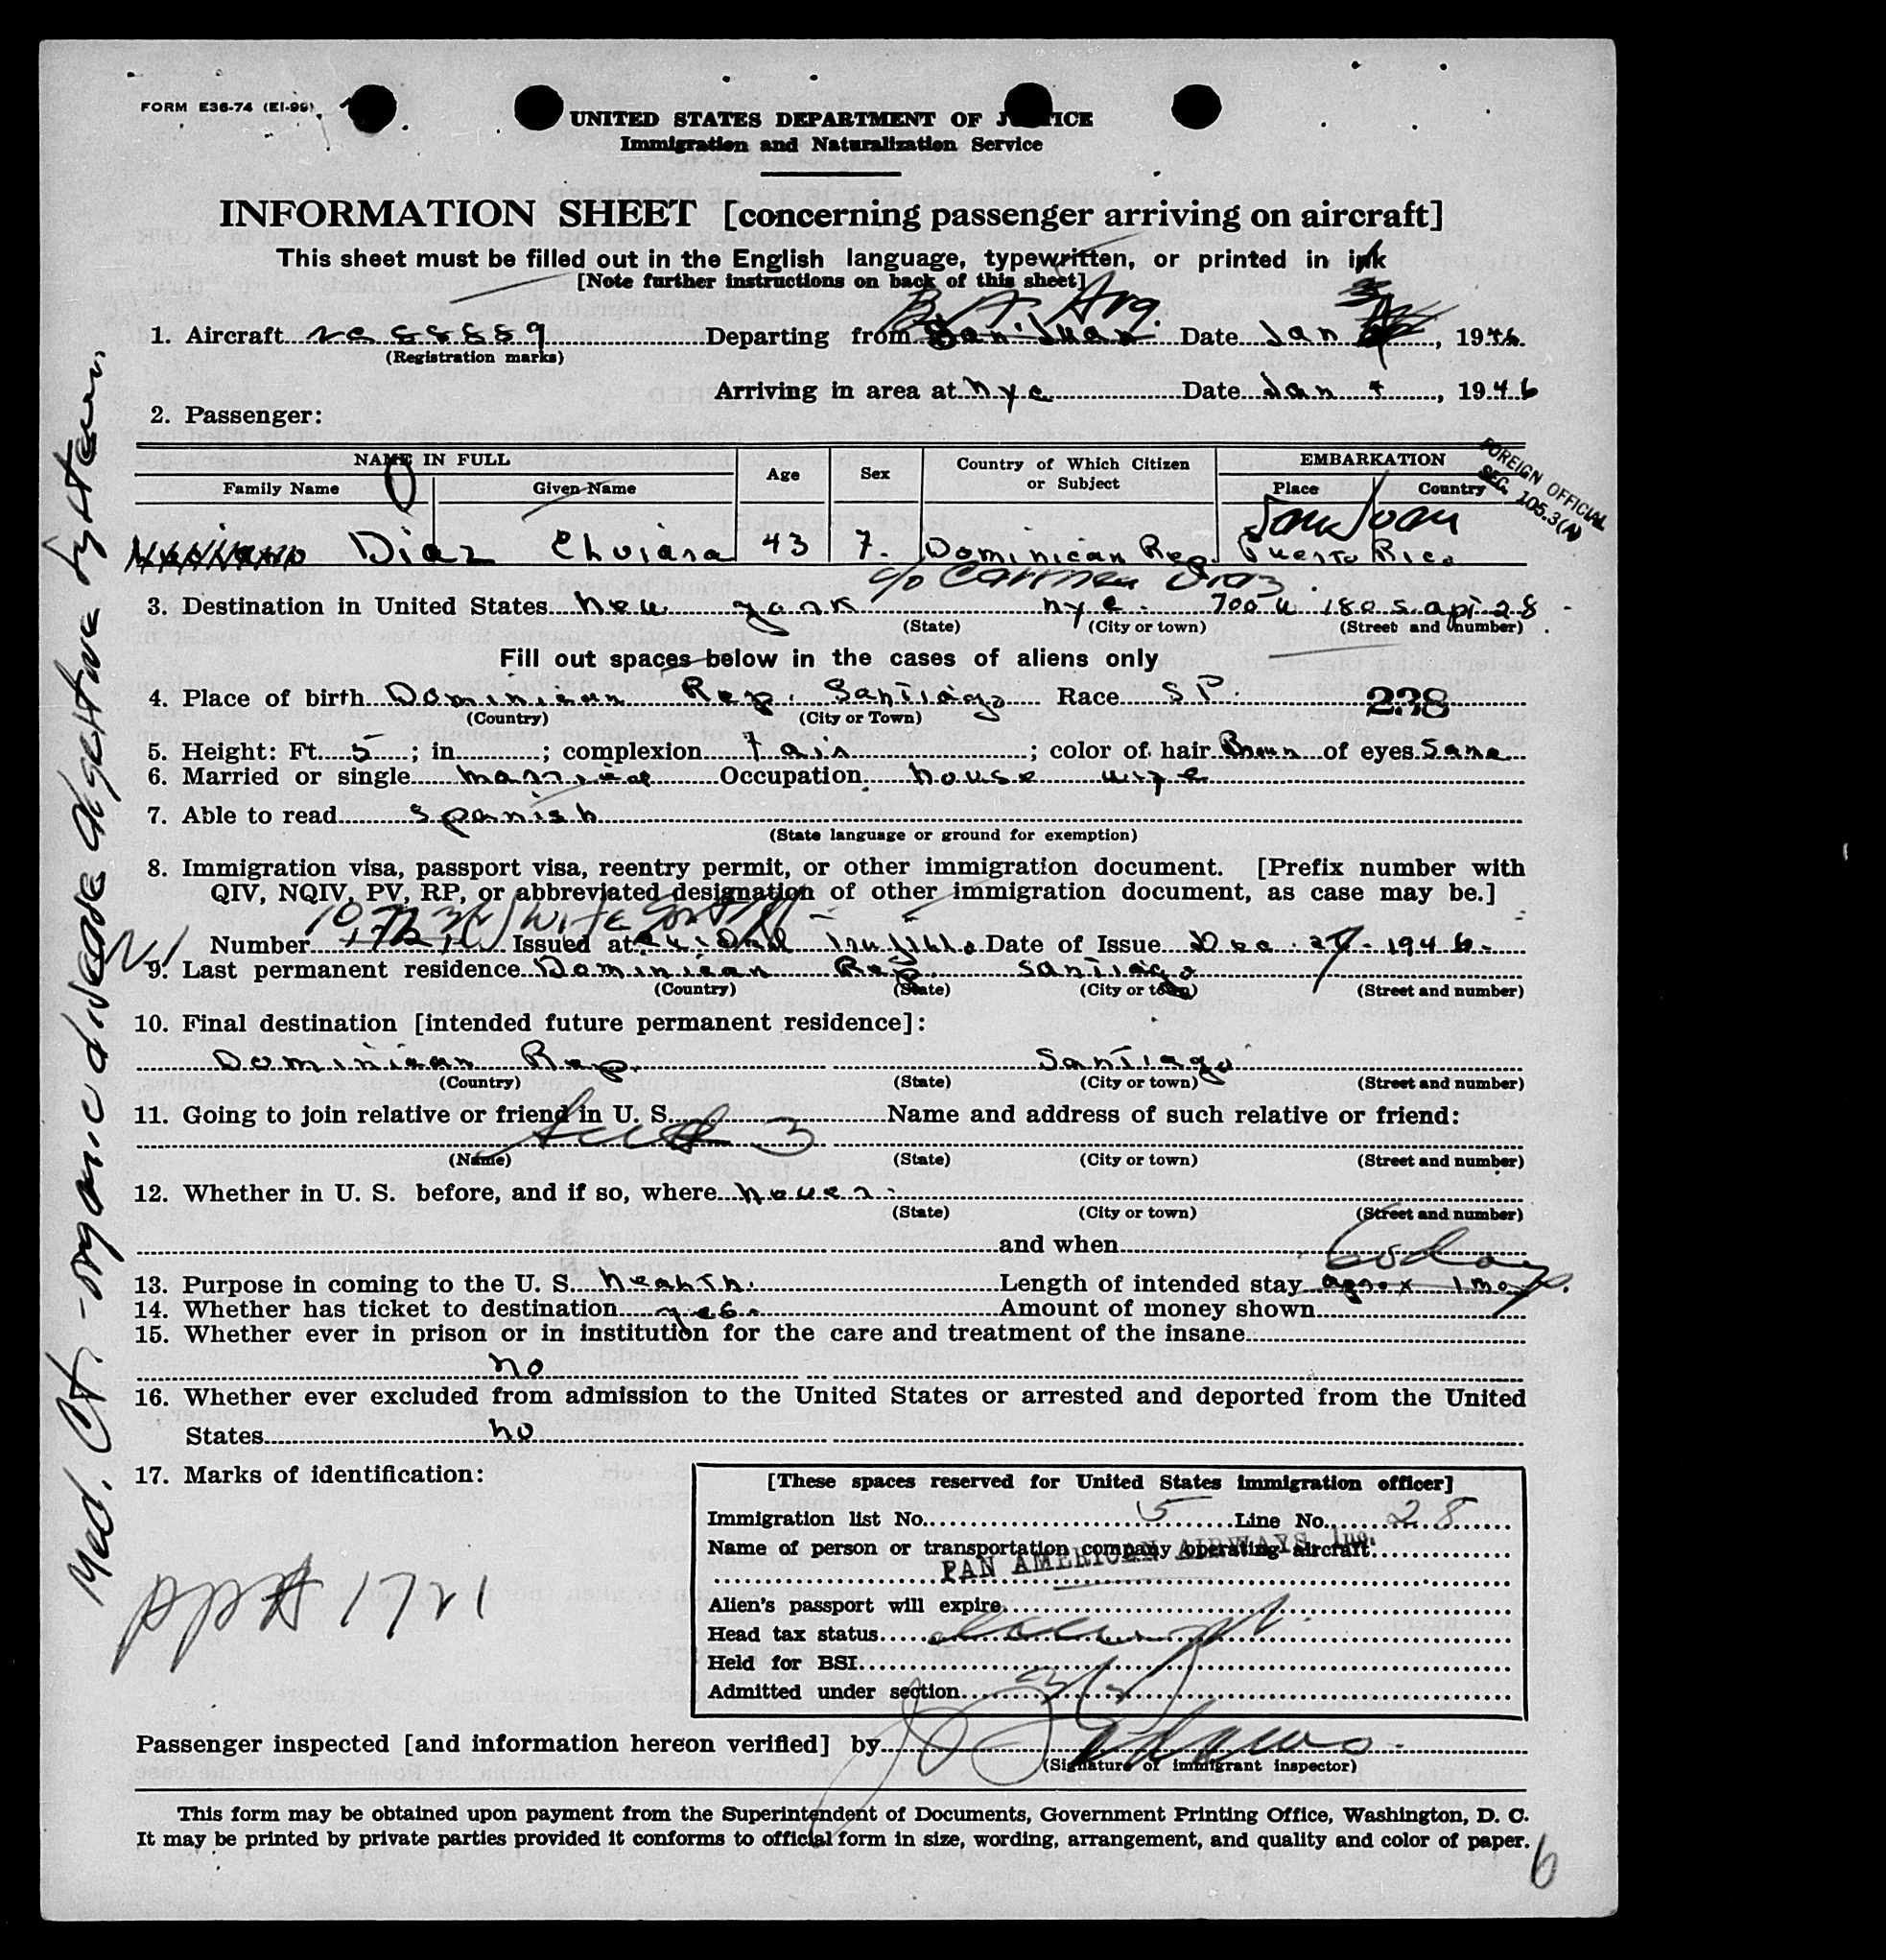 FORM E36-74 (EI-99)
UNITED STATES DEPARTMENT OF JUSTICE
Immigration and Naturalization Service
INFORMATION SHEET [concerning passenger arriving on aircraft]
This sheet must be filled out in the English language, typewritten, or printed in ink
[Note further instructions on back of this sheet]
B. A. Arg.
1. Aircraft nc 88889 Departing from San Juan Date Jan , 1946.
(Registration marks)
Arriving in area at nyc Date Jan 4, 1946
2. Passenger:
NAME IN FULL Age Sex Country of Which Citizen or Subject EMBARKATION
Family Name Given Name Place Country
FOREIGN OFFICIAL
SEC. 105.3(A)
San Juan
Diaz 43 7. Dominican Rep. Puerto Rico
c/o Carmen Diaz
3. Destination in United States new york nyc. 700 w 180 s. apt 28
(State) (City or town) (Street and number)
Fill out spaces below in the cases of aliens only
4. Place of birth Dominican Rep. Santiago Race SP. 238
(Country) (City or Town)
5. Height: Ft. 5; in. ; complexion fair; color of hair Brown of eyes Same
6. Married or single married Occupation house wife
7. Able to read Spanish
(State language or ground for exemption)
8. Immigration visa, passport visa, reentry permit, or other immigration document. [Prefix number with
QIV, NQIV, PV, RP, or abbreviated designation of other immigration document, as case may be.]
wife
Number Issued at Date of Issue Dec. 27-1946-
9. Last permanent residence Dominican Rep. Santiago
(Country) (State) (City or town) (Street and number)
10. Final destination [intended future permanent residence]:
Dominican Rep. Santiago
(Country) (State) (City or town) (Street and number)
11. Going to join relative or friend in U. S. Name and address of such relative or friend:
3
(Name) (State) (City or town) (Street and number)
12. Whether in U. S. before, and if so, where never.
(State) (City or town) (Street and number)
and when
60 days.
13. Purpose in coming to the U. S. health. Length of intended stay aprox 1 mo
14. Whether has ticket to destination yes. Amount of money shown
15. Whether ever in prison or in institution for the care and treatment of the insane
no
16. Whether ever excluded from admission to the United States or arrested and deported from the United
States no
17. Marks of identification:
[These spaces reserved for United States immigration officer]
Immigration list No. 5 Line No. 28
Name of person or transportation company operating aircraft
PAN AMERICAN AIRWAYS, Inc.
Alien's passport will expire
Head tax status
Held for BSI
Admitted under section 3(2)
Passenger inspected [and information hereon verified] by
(Signature of immigrant inspector)
This form may be obtained upon payment from the Superintendent of Documents, Government Printing Office, Washington, D. C.
It may be printed by private parties provided it conforms to official form in size, wording, arrangement, and quality and color of paper.
6
Med. Ct. - organic disease digestive system.
PP# 1721